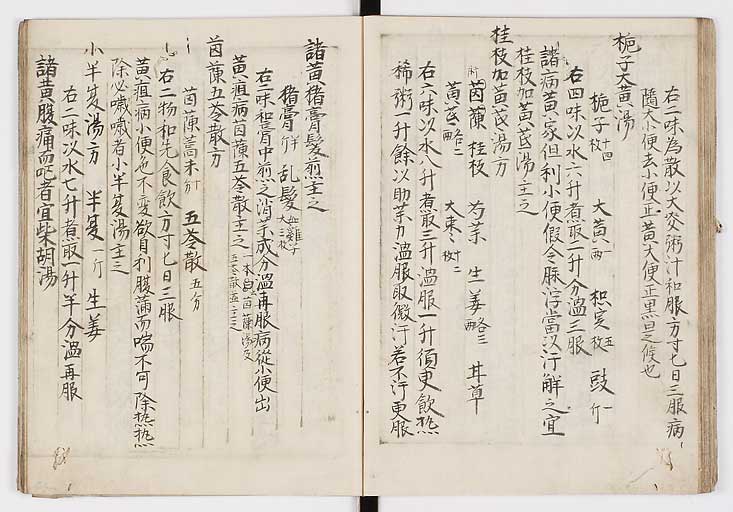 右二味為散以大麥粥汁和服方寸匕日三服病
隨大小便去小便正黄大便正黒是之候也
梔子大黄湯
梔子十四枚 大黄一兩 枳実五枚 豉一斤
右四味以水六升煮取二升分温三服
諸病黄家但利小便假令脉浮當以汗解之宜
桂枝加黄茋湯主之
桂枝加黄茋湯方
桂枝 芍薬 生姜各三兩 甘草
黄茋各二兩 大棗十二枚
右六味以水八升煮取三升温服一升須更飲热
稀粥一升餘以助薬力温服取微汗若不汗更服
諸黄猪膏髪煎主之
猪膏半斤 乱髪如雞子大三枚
右二味和膏中煎之消薬成分温再服病從小便出
黄疸病茵蔯五苓散主之一本云茵蔯湯及五苓散並主之
茵蔯五苓散方
茵蔯蒿末十分 五苓散五分
右二物和先食飲方寸匕日三服
黄疸病小便色不變欲自利腹滿而喘不可除热热
除必噦噦者小半夏湯主之
小半夏湯方 半夏一斤 生姜
右二味以水七升煮取一升半分温再服
諸黄腹痛而呕者宜柴胡湯